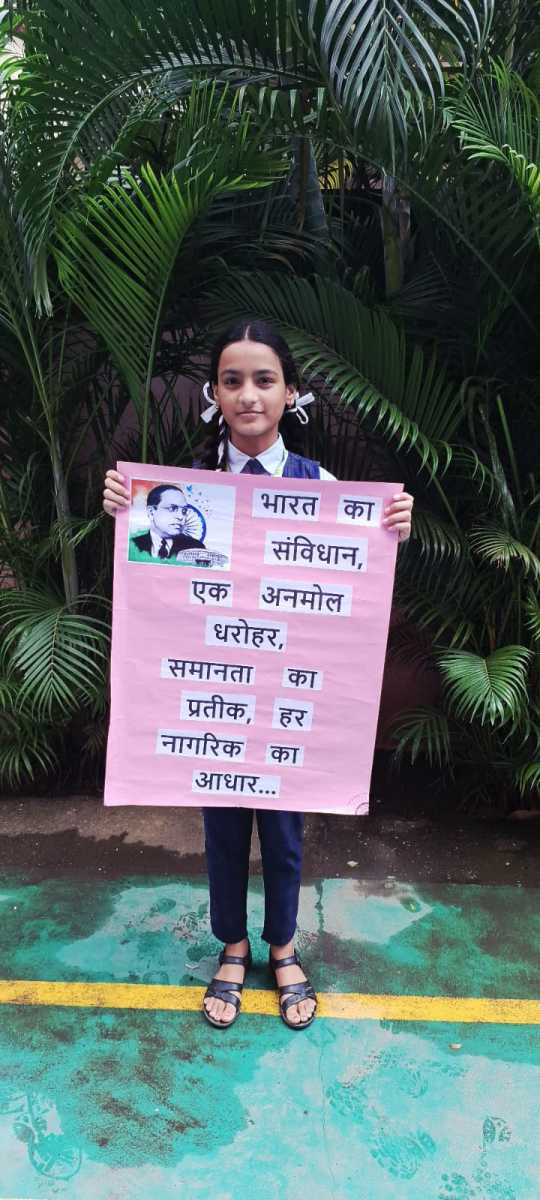 भारत का
संविधान,
एक अनमोल
धरोहर,
समानता का
प्रतीक, हर
नागरिक का
आधार...